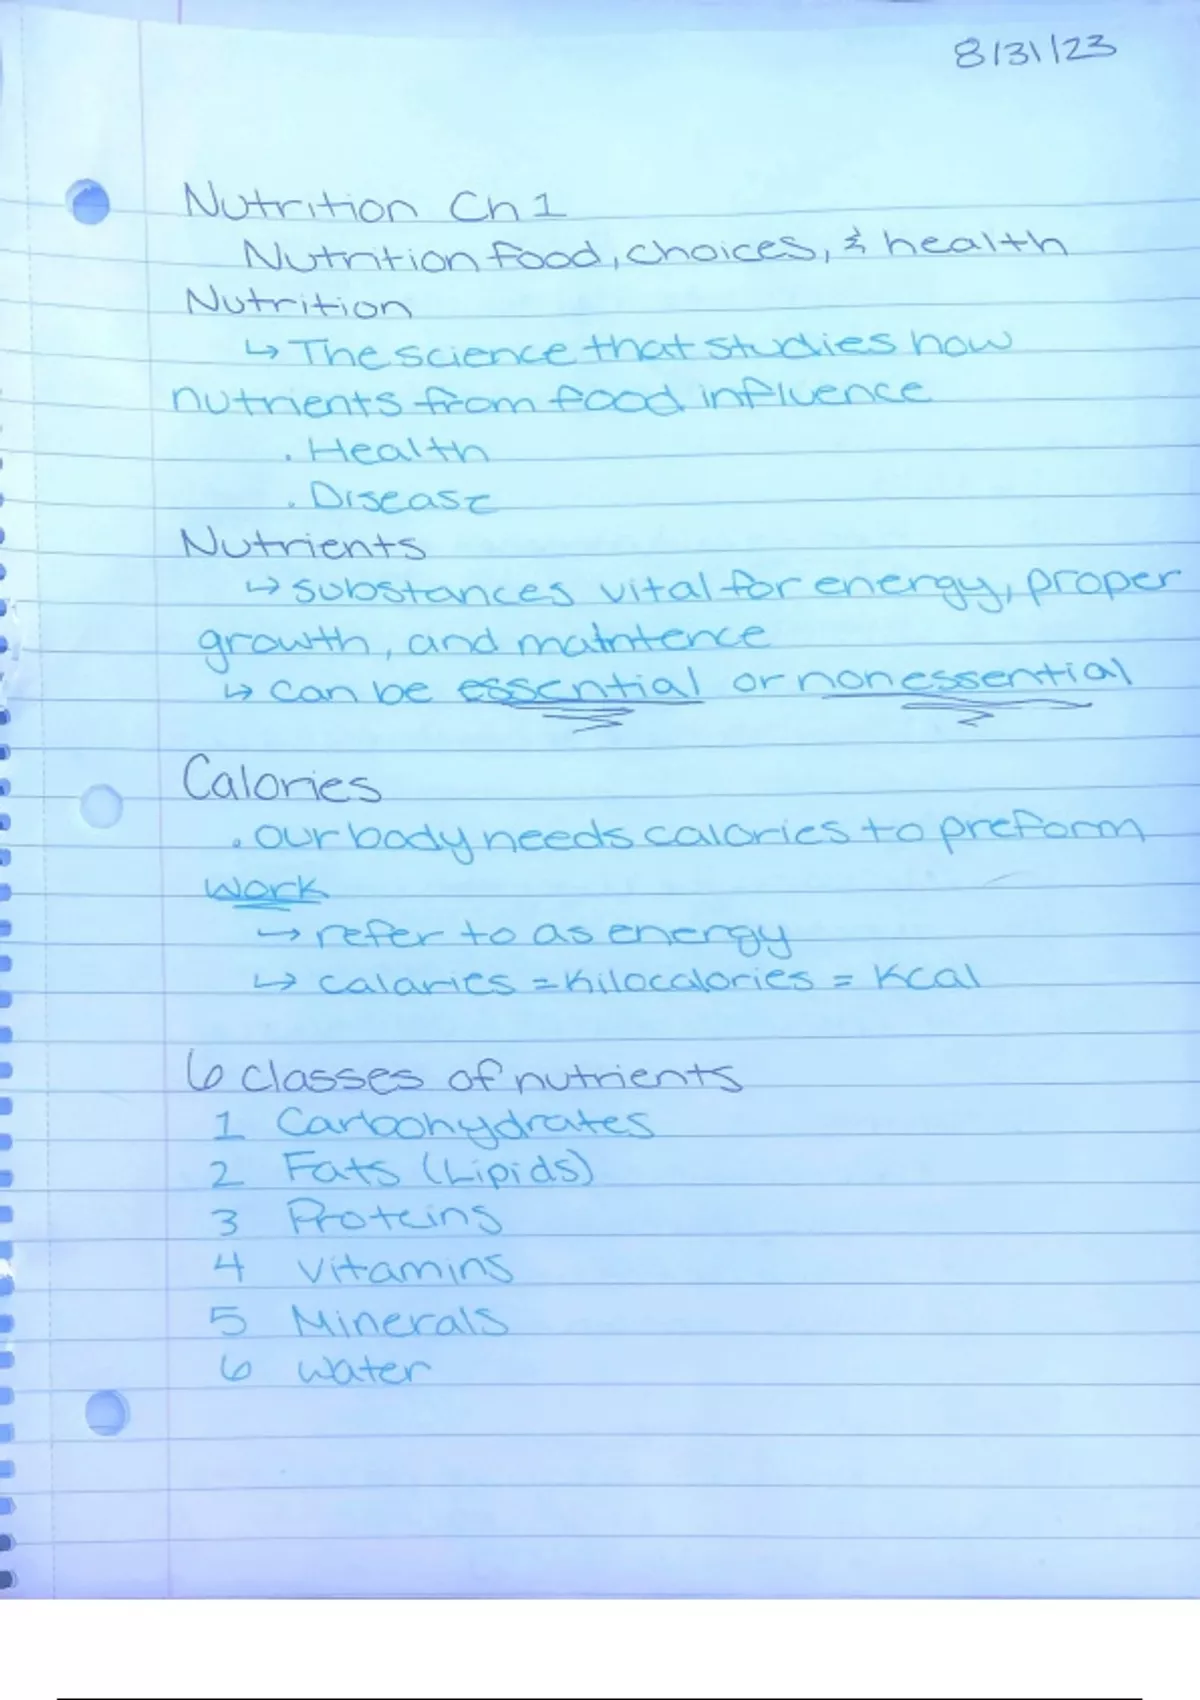 8/31/23
Nutrition Ch 1
Nutrition food, choices, & health
Nutrition
↳ The science that studies how
nutrients from food influence
. Health
. Disease
Nutrients
↳ substances vital for energy, proper
growth, and maintence
↳ can be essential or nonessential
Calories
. our body needs calories to preform
work
→ refer to as energy
↳ calories = kilocalories = Kcal
6 classes of nutrients
1 Carbohydrates
2 Fats (Lipids)
3 Proteins
4 vitamins
5 Minerals
6 water